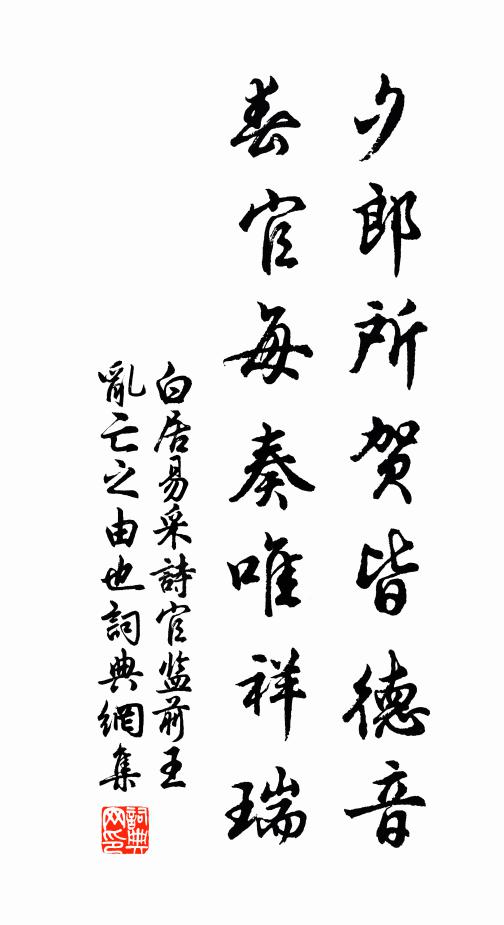 夕郎所贺皆德音
春官每奏唯祥瑞
白居易采詩官监前王
亂亡之由也詞典網集
詞典网印